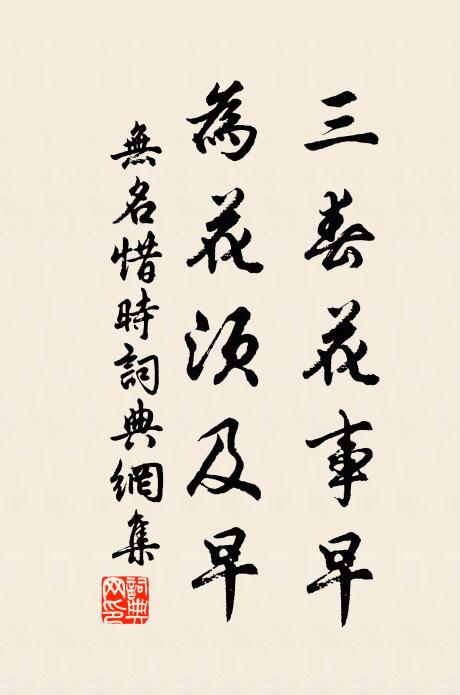 三春花事早
為花須及早
無名惜時詞典網集
詞典
网印